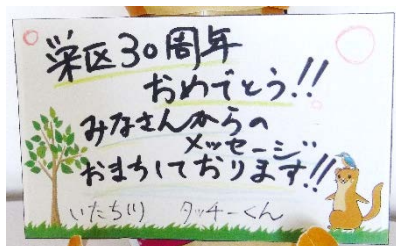 栄区30周年
おめでとう!!
みなさんからの
メッセージ
おまちしております!!
いたち川 タッチーくん